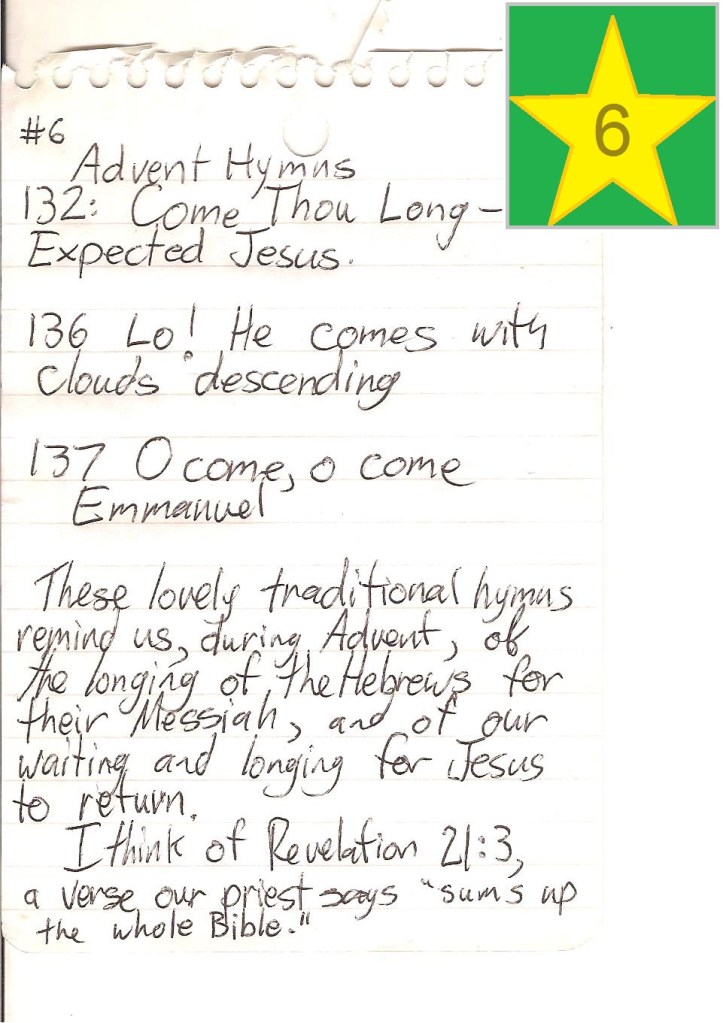 6
#6
Advent Hymns
132: Come Thou Long-
Expected Jesus.
136 Lo! He comes with
clouds descending
137 O come, o come
Emmanuel
These lovely traditional hymns
remind us, during Advent, of
the longing of the Hebrews for
their Messiah, and of our
waiting and longing for Jesus
to return.
I think of Revelation 21:3,
a verse our priest says "sums up
the whole Bible."